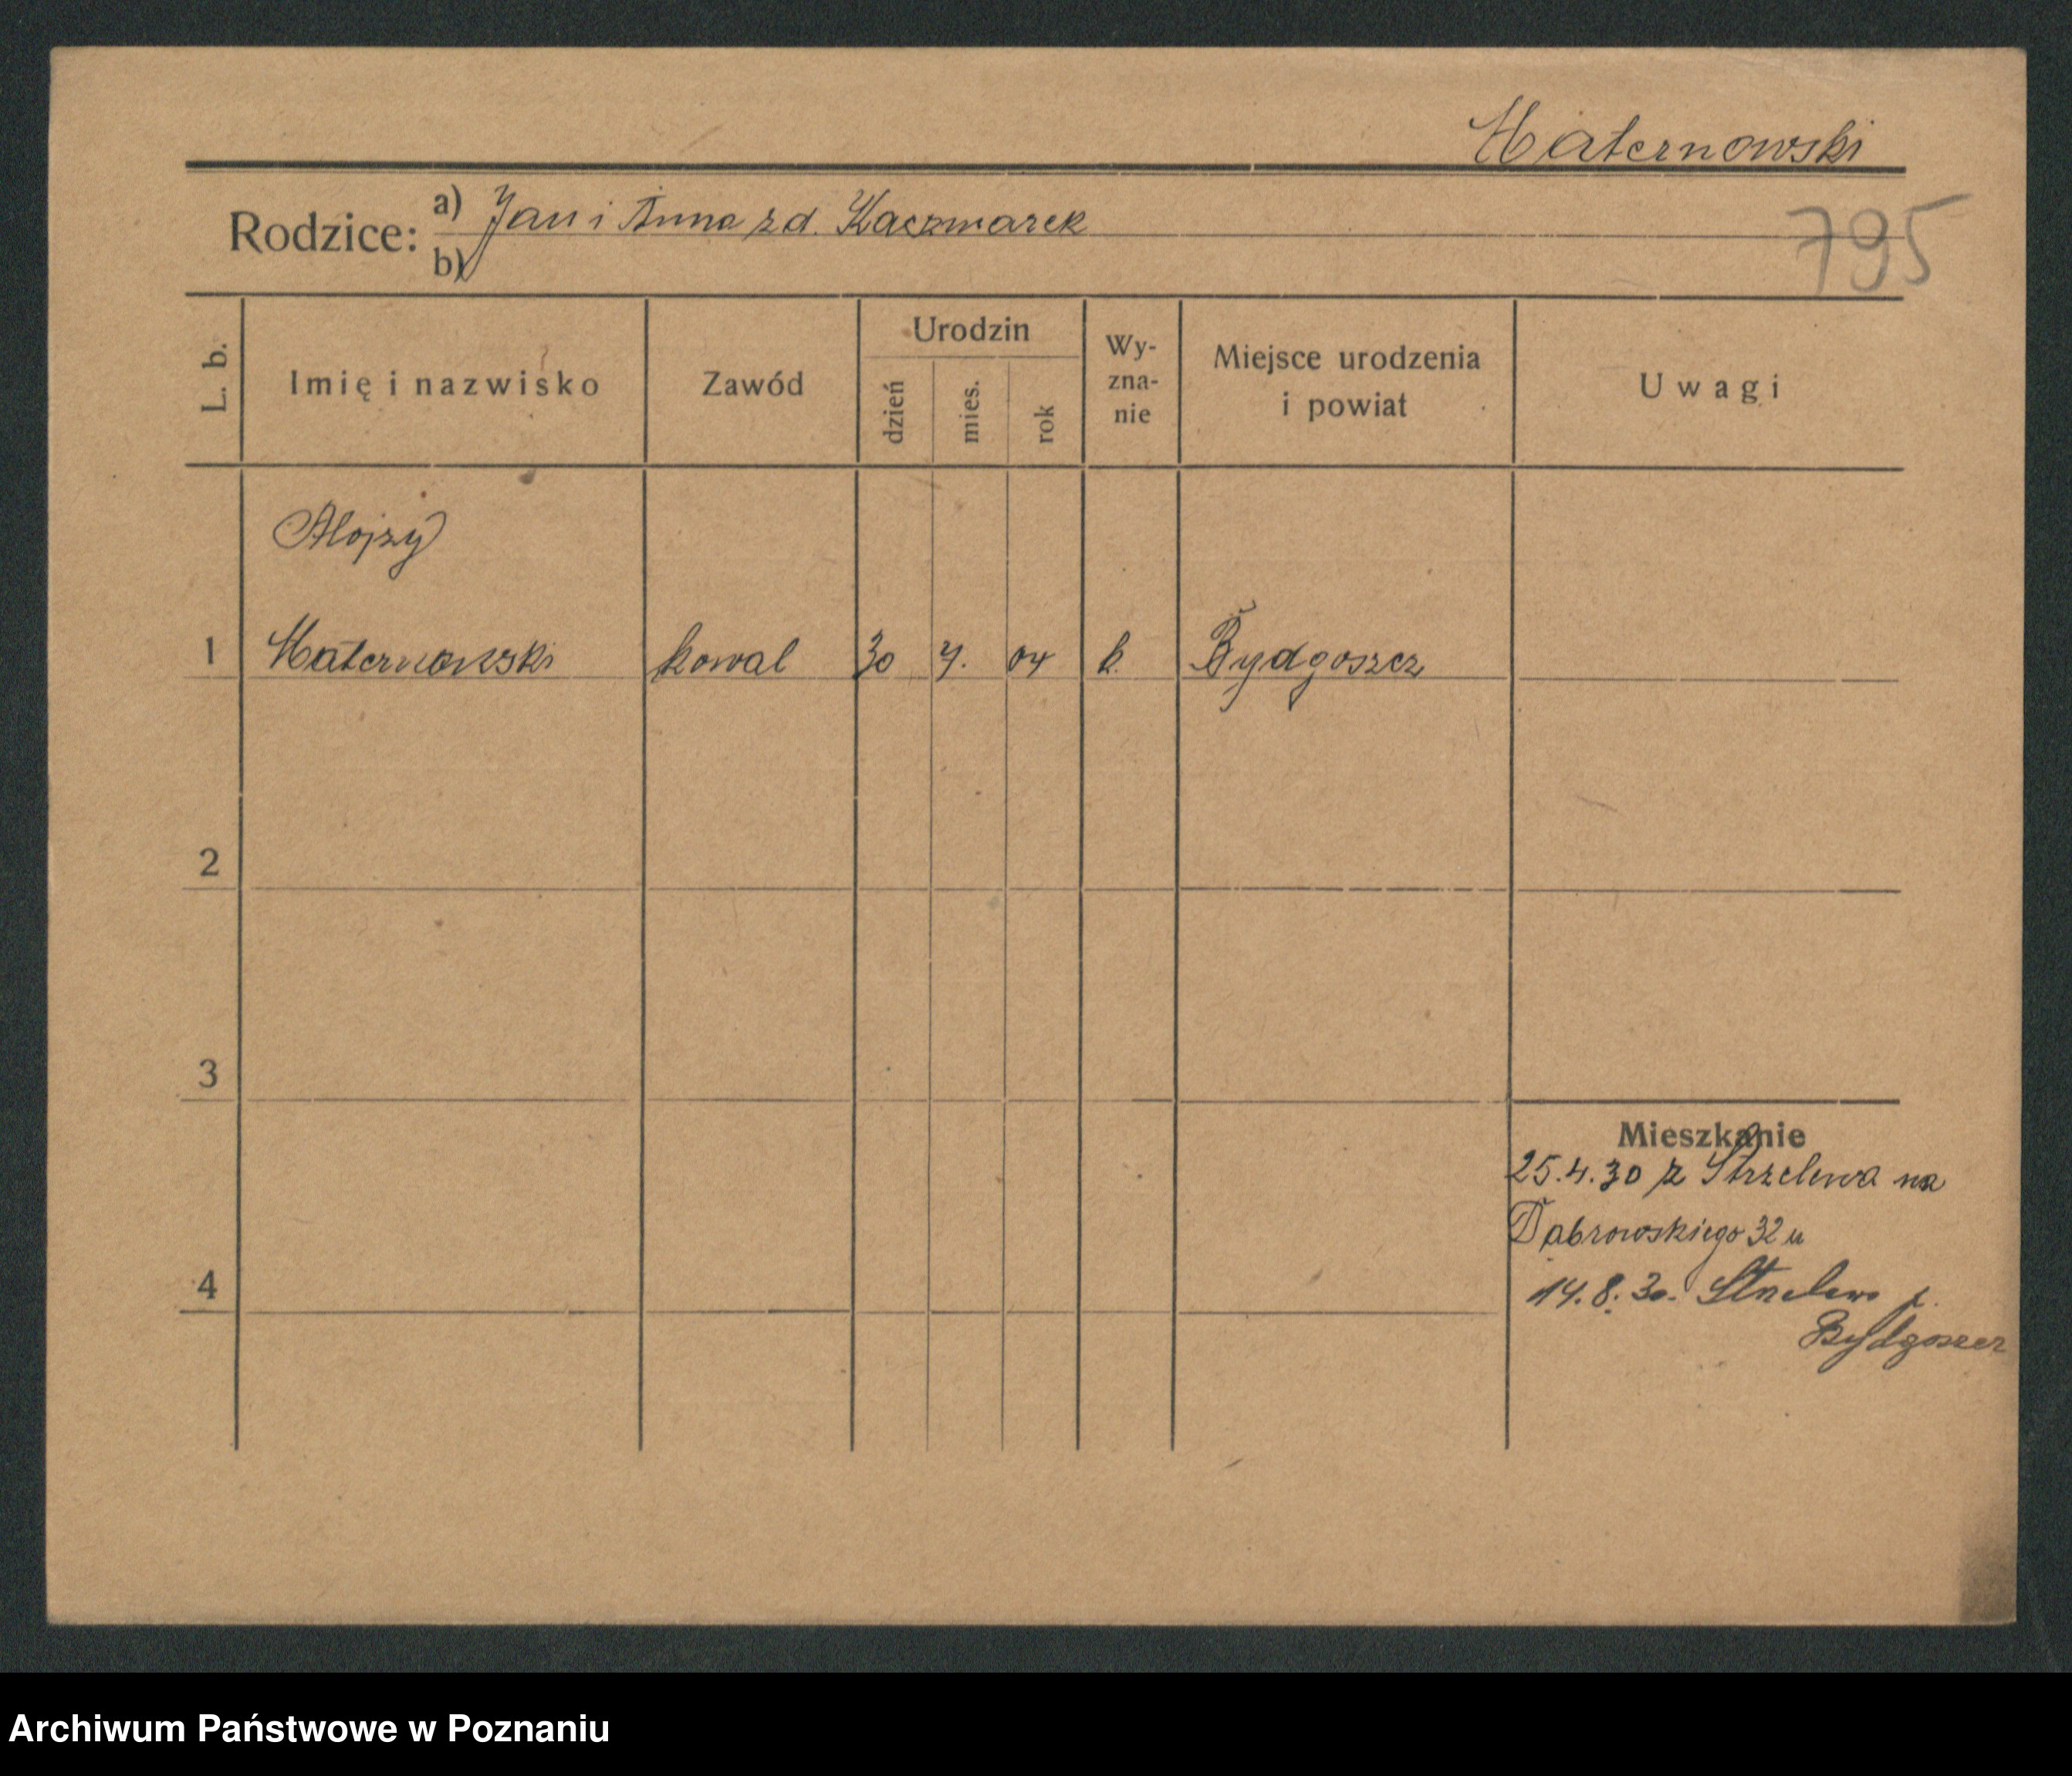 Maternowski
Rodzice: a) Jan i Anna z d. Kaczmarek
b)
795
L. b.
Imię i nazwisko
Zawód
Urodzin
dzień
mies.
rok
Wy-
zna-
nie
Miejsce urodzenia
i powiat
Uwagi
Alojzy
1 Maternowski kowal 30 04 k. Bydgoszcz
2
3
4
Mieszkanie
25.4.30 z Strzelewa na
Dąbrowskiego 32 u
14.8.30. Strzelewo p.
Bydgoszcz
Archiwum Państwowe w Poznaniu